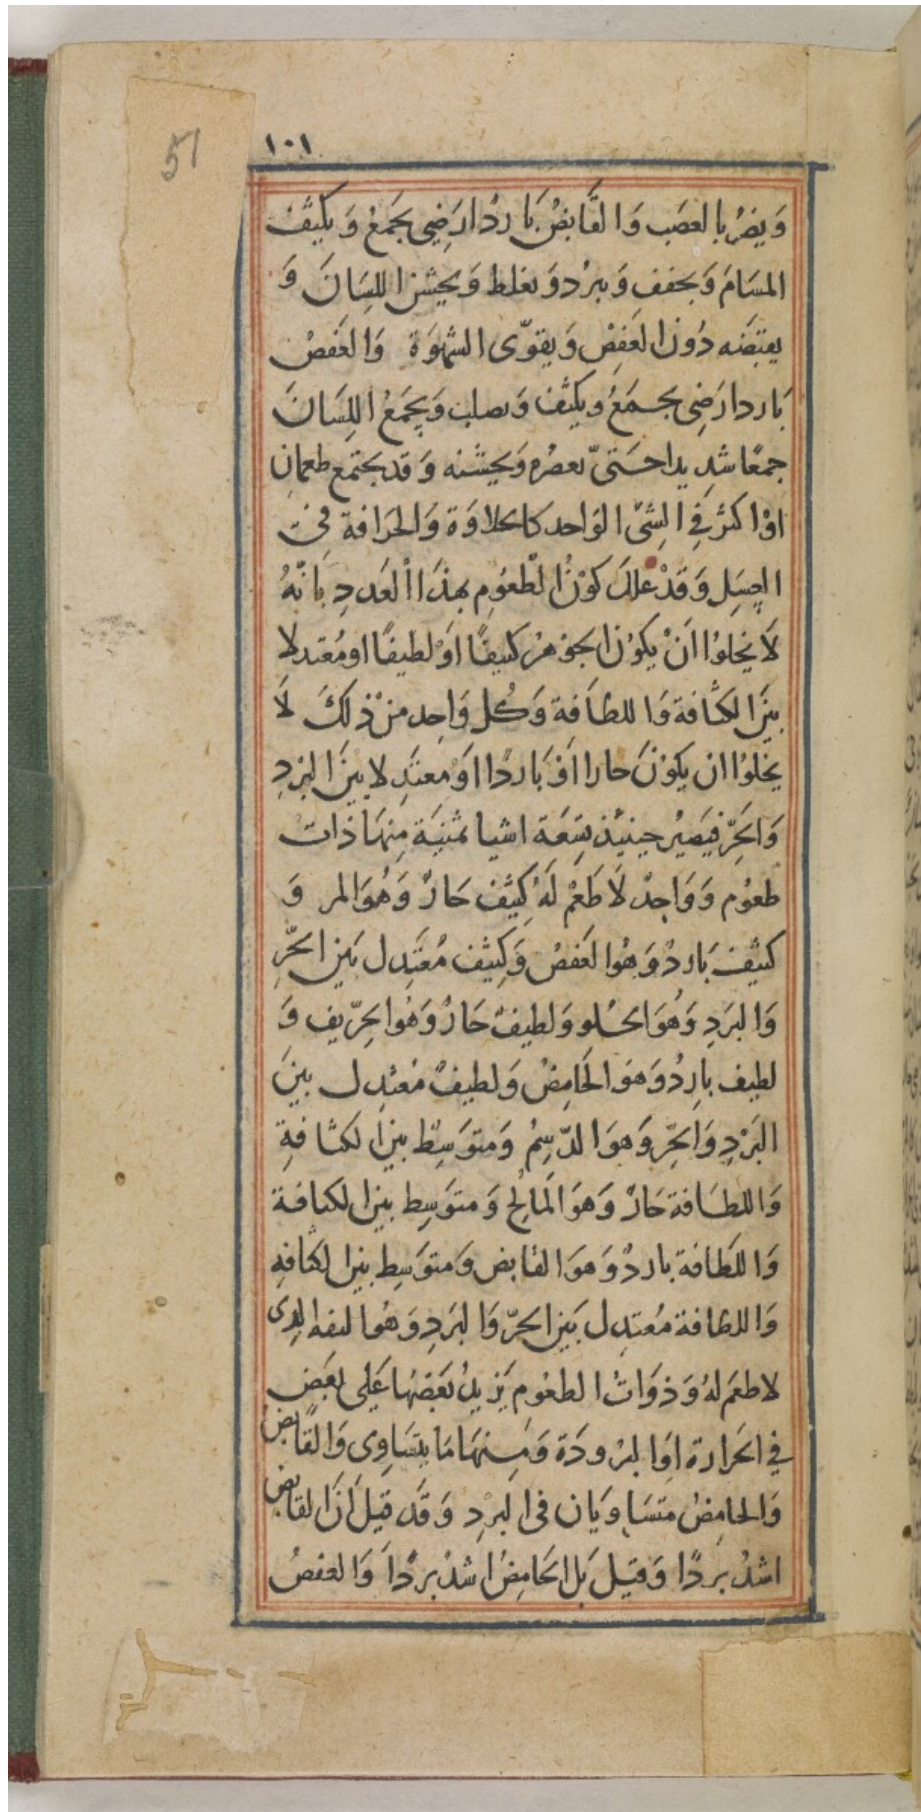 51
١٠١
وَيضرُ بالعصَب وَالقَابضُ بَاردُ ارَضِي يجمَعُ وَيكيثف
المسَامَ وَيجفف وَيبرُد وَيغلط وَيخشن اللِسَانَ وَ
يقبضَه دُونَ العَفِصْ وَيقوّى الشهوَة وَالعَفصُ
بَارد ارَضِى يجمَعُ ويكثف وَيصلب وَيجمَعُ اللِسَانَ
جمعًا شديدا حَتىّ يعصُره وَيخشنه وَقد يجتمع طعمان
اوْ اكثرْ فِي الشىّ الوَاحد كالحلاوَة وَالحَرافة فى
العسَل وَقدْ علل كوْنُ الطعُوم بهذَا العَددِ بانّهُ
لَا يخلوُا انْ يكوُن الجوْهرُ كثيفًا اوَ لطيفًا او مُعتدلا
بينَ الكثافة وَاللطاَفِة وَكُل وَاحِد منْ ذلكَ لَا
يخلوُا ان يكوْنَ حارا اوْ بَاردًا اوَ معتَدِلا بينَ البَردِ
وَالحَرِّ فيَصيرُ حينئذ تسِعَة اشيا ثمنيَة مِنهَا ذات
طعوُم وَوَاحِدْ لَا طَعْم لَهُ كِيثف حَارْ وَهُوَ المر وَ
كيثف بَاردْ وَهُوا لعَفصُ وَكيثف مُعتَدِل بَين الحَّرِ
وَالبَردِ وَهُوَ الحلو وَلطيفْ حَارُ وَهُوا لحِرّيف وَ
لطيف بارِدُ وَهوَ الحَامِضُ وَلطيفْ مُعتدِل بينَ
البَرْدِ وَالحَرِّ وَهوَ الدّسِمُ وَمتوَسِطْ بين الكثافةِ
وَاللطَافة حَارْ وَهوَ المَالِح وَمتوَسِط بين الكثافة
وَاللَطَافة باردْ وَهوَ القابض وَمتوَسِط بين الكثافهِ
وَاللطافة مُعتدِل بَين الحَرّ وَالبَردِ وَهُوا لتفه الذى
لا طعمَ لهُ وَذوَاتُ الطعُوم يَزيدُ بَعَضهُا عَلى بَعَض
في الحَرارة اوَالبرُودَة وَمِنهَا مَا يتسَاوِى وَالقَابض
وَالحامِضُ متسَاوِيَان فى البَردِ وَقَد قيل انَ القابض
اشدُ بَردًا وَقيل بَل الحَامِضُ اشدُ بردًا وَالعفصُ